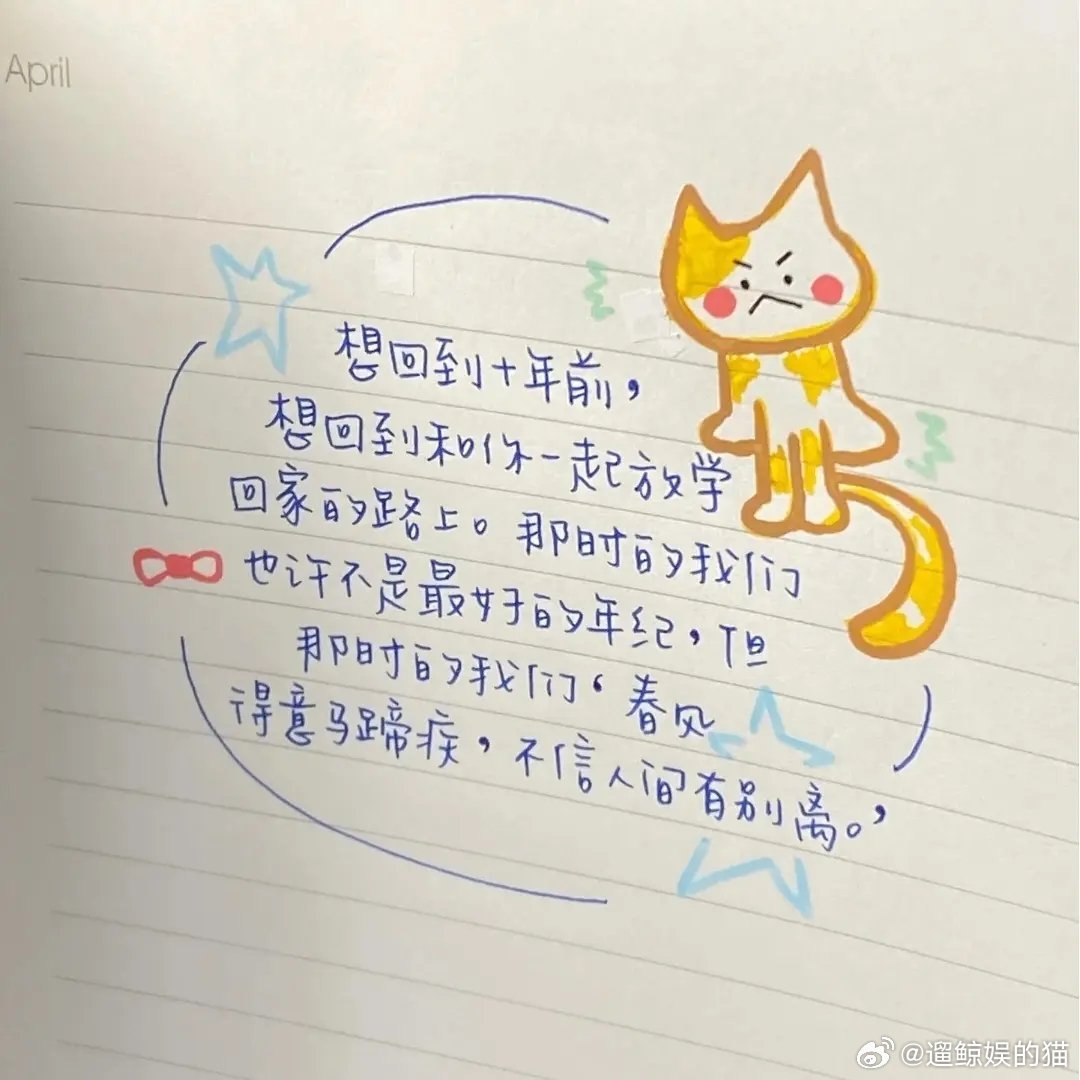 April
想回到十年前，
想回到和你一起放学
回家的路上。那时的我们
也许不是最好的年纪，但
那时的我们‘春风
得意马蹄疾，不信人间有别离。’
@遛鲸娱的猫